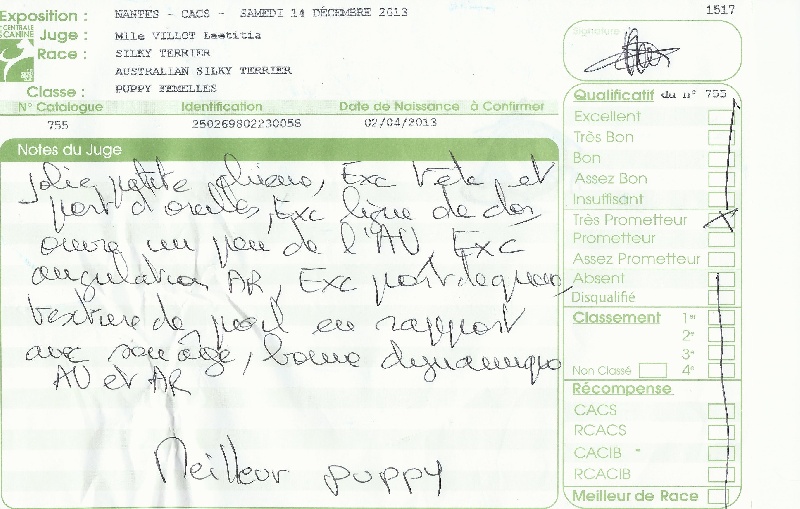 Exposition : NANTES - CACS - SAMEDI 14 DÉCEMBRE 2013
1517
CENTRALE CANINE
Juge : Mlle VILLOT Laetitia
Race : SILKY TERRIER
AUSTRALIAN SILKY TERRIER
Classe : PUPPY FEMELLES
Signature
N° Catalogue Identification Date de Naissance à Confirmer
755 250269802230058 02/04/2013
Notes du Juge
Jolie petite chienne, Exc tete et
port d'oreilles, Exc ligne de dos
ouvre un peu de l'AV, Exc
angulation AR, Exc port de queue,
texture de poil en rapport
avec son âge, bonne dynamique
AV et AR
Meilleur puppy
Qualificatif du n° 755
Excellent
Très Bon
Bon
Assez Bon
Insuffisant
Très Prometteur
Prometteur
Assez Prometteur
Absent
Disqualifié
Classement 1er
2e
3e
Non Classé 4e
Récompense
CACS
RCACS
CACIB
RCACIB
Meilleur de Race